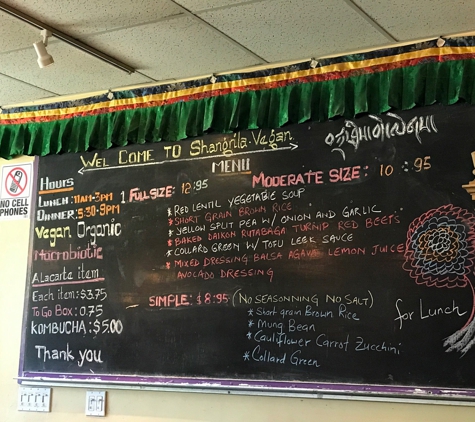 WEL COME TO Shangrila-Vegan
MENU
NO CELL
PHONES
Hours
LUNCH: 11AM-3PM
DINNER: 5:30-9PM
Vegan Organic
Macrobiotic
A la carte item
Each item: $3.75
To Go Box: 0.75
KOMBUCHA: $5.00
Thank you
FULL SIZE: 12.95
MODERATE SIZE: 10.95
* RED LENTIL VEGETABLE SOUP
* SHORT GRAIN BROWN RICE
* YELLOW SPLIT PEA W/ ONION AND GARLIC
* BAKED DAIKON RUTABAGA TURNIP RED BEETS
* COLLARD GREEN W/ TOFU LEEK SAUCE
* MIXED DRESSING: BALSA AGAVE LEMON JUICE
AVOCADO DRESSING
SIMPLE: $8.95 (NO SEASONNING NO SALT)
* Short grain Brown Rice
* Mung Bean
* Cauliflower Carrot Zucchini
* Collard Green
for Lunch